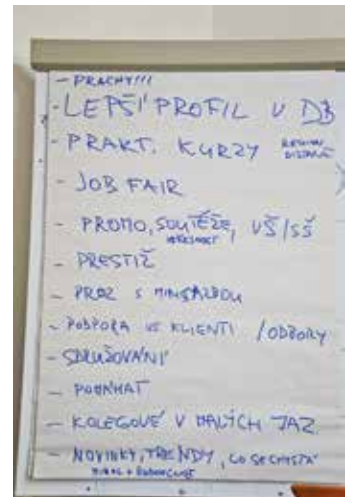 - PRACHY!!!
- LEPŠÍ PROFIL V DB
- PRAKT. KURZY
- JOB FAIR
- PROMO, SOUTĚŽE, VŠ/SŠ
- PRESTIŽ
- S
- PODPORA VE KLIENTI / ODBORY
- SDRUŽOVÁNÍ
- POMÁHAT
- KOLEGOVÉ V MALÝCH JAZ.
- NOVINKY, TRENDY, CO SE CHYSTÁ